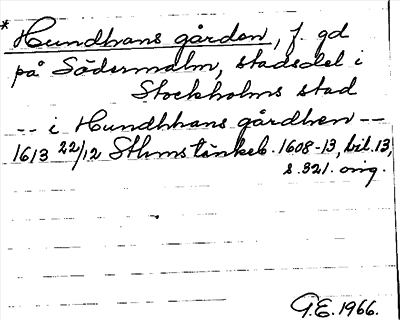 * Hundhans gården, f. gd
på Södermalm, stadsdel i
Stockholms stad
-- i Hundhhans gårdhen --
1613 22/12 Sthms tänkeb. 1608-13, bil. 13,
s. 321. orig.
G.E. 1966.